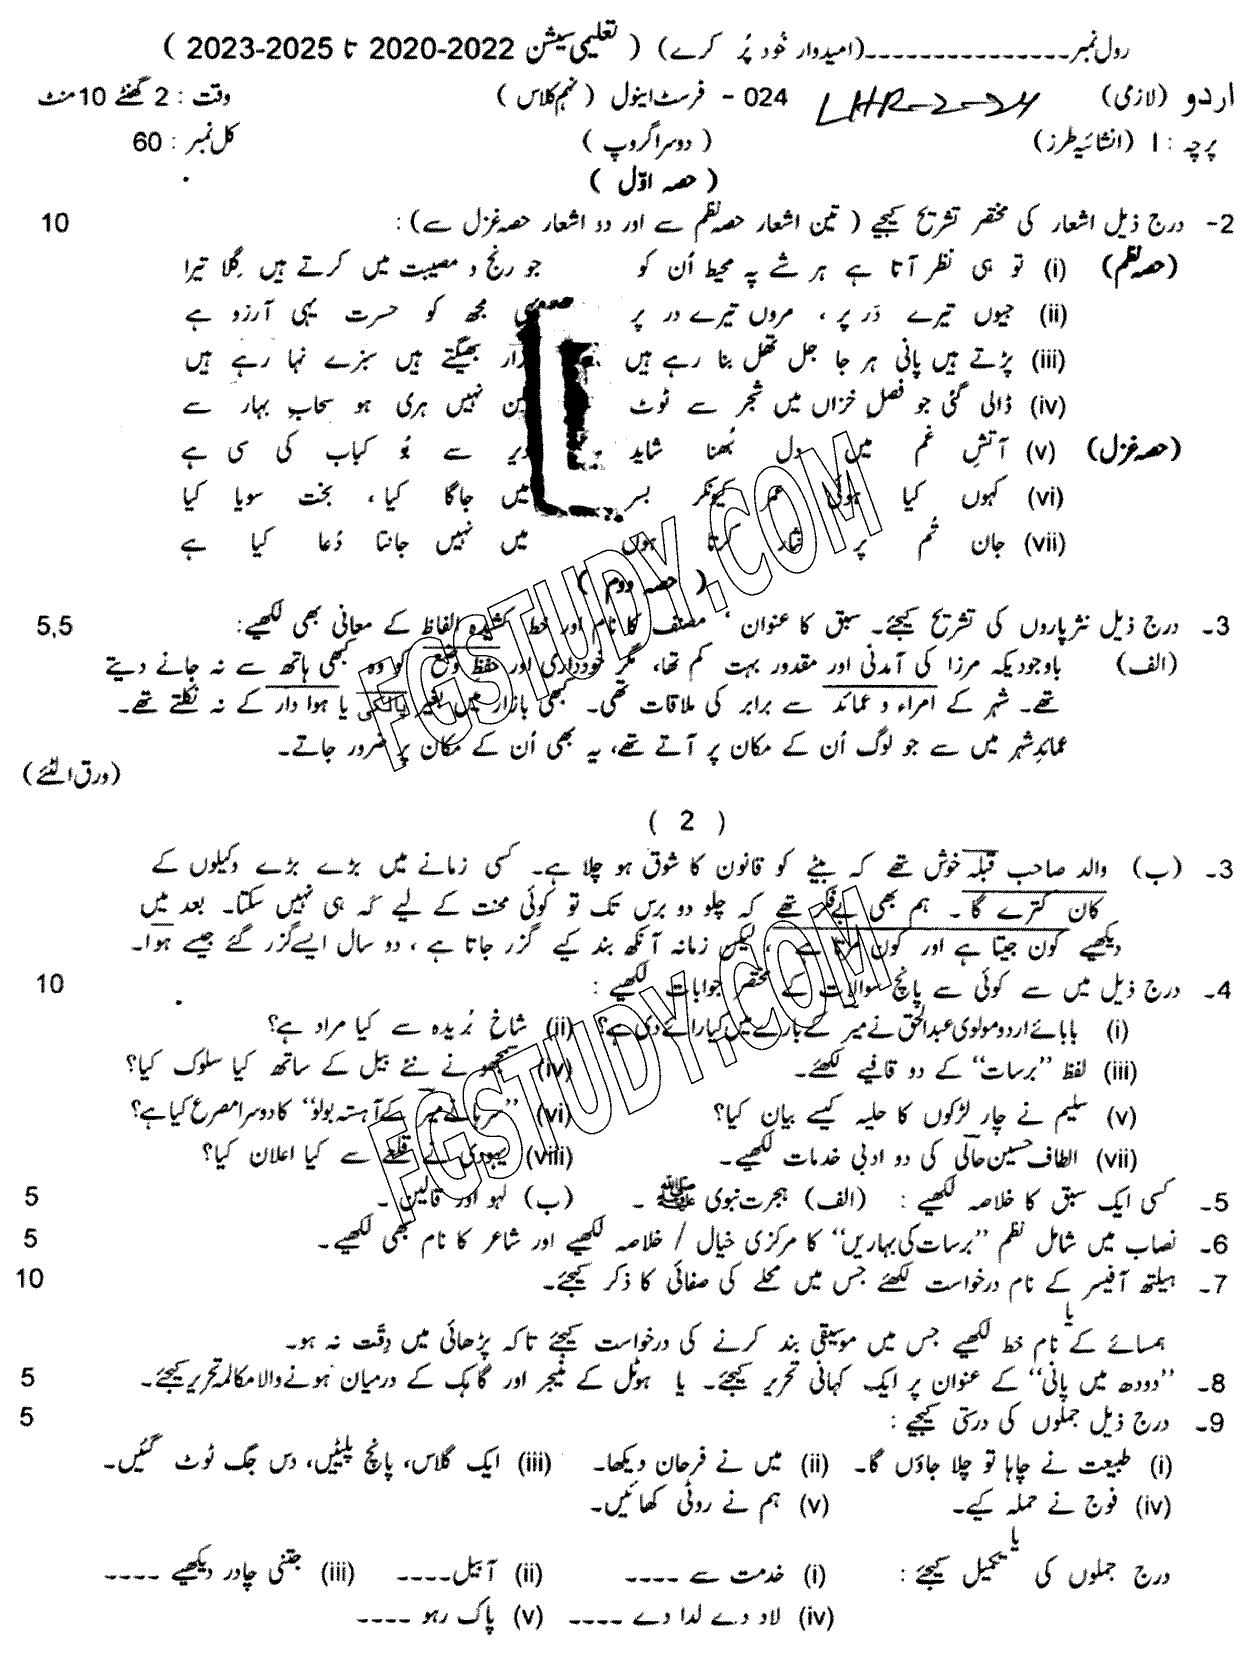 رول نمبر ________________ (امیدوار خود پُر کرے) ( تعلیمی سیشن 2022-2020 تا 2025-2023 )
اردو (لازمی) LHR-2-24 024 - فرسٹ اینول ( نہم کلاس ) وقت : 2 گھنٹے 10 منٹ
پرچہ : I (انشائیہ طرز) ( دوسرا گروپ ) کل نمبر : 60
( حصہ اوّل )
2- درج ذیل اشعار کی مختصر تشریح کیجیے ( تین اشعار حصہ نظم سے اور دو اشعار حصہ غزل سے ) : 10
(حصہ نظم) (i) تو ہی نظر آتا ہے ہر شے پہ محیط اُن کو جو رنج و مصیبت میں کرتے ہیں گِلا تیرا
(ii) جیوں تیرے دَر پر ، مروں تیرے در پر مجھ کو حسرت یہی آرزو ہے
(iii) پڑتے ہیں پانی ہر جا جل تھل بنا رہے ہیں بھیگتے ہیں سبزے نہا رہے ہیں
(iv) ڈالی گئی جو فصلِ خزاں میں شجر سے ٹوٹ نہیں ہری ہو سحابِ بہار سے
(حصہ غزل) (v) آتشِ غم میں دل بُھنا شاید سے بُو کباب کی سی ہے
(vi) کہوں کیا ہوئی عمر کیونکر بسر میں جاگا کیا ، بخت سویا کیا
(vii) جان تُم پر نثار کرتا ہوں میں نہیں جانتا دُعا کیا ہے
( حصہ دوم )
3- درج ذیل نثرپاروں کی تشریح کیجئے۔ سبق کا عنوان ، مصنف کا نام اور خط کشیدہ الفاظ کے معانی بھی لکھیے: 5,5
(الف) باوجودیکہ مرزا کی آمدنی اور مقدور بہت کم تھا، مگر خودداری اور حفظِ وضع کو وہ کبھی ہاتھ سے نہ جانے دیتے
تھے۔ شہر کے امراء و عمائد سے برابر کی ملاقات تھی۔ کبھی بازار میں بغیر پالکی یا ہوا دار کے نہ نکلتے تھے۔
عمائدِشہر میں سے جو لوگ اُن کے مکان پر آتے تھے، یہ بھی اُن کے مکان پر ضرور جاتے۔
(ورق الٹئے)
( 2 )
3- (ب) والد صاحب قبلہ خوش تھے کہ بیٹے کو قانون کا شوق ہو چلا ہے۔ کسی زمانے میں بڑے بڑے وکیلوں کے
کان کترے گا۔ ہم بھی بےفکر تھے کہ چلو دو برس تک تو کوئی محنت کے لیے کہہ ہی نہیں سکتا۔ بعد میں
دیکھیے کون جیتا ہے اور کون مرتا ہے ، لیکن زمانہ آنکھ بند کیے گزر جاتا ہے ، دو سال ایسے گزر گئے جیسے ہوا۔
4- درج ذیل میں سے کوئی سے پانچ سوالات کے مختصر جوابات لکھیے : 10
(i) بابائے اردو مولوی عبدالحق نے میر کے بارے میں کیا رائے دی ہے؟ (ii) شاخِ بُریدہ سے کیا مراد ہے؟
(iii) لفظ "برسات" کے دو قافیے لکھئے۔ (iv) سمجھو نے نئے بیل کے ساتھ کیا سلوک کیا؟
(v) سلیم نے چار لڑکوں کا حلیہ کیسے بیان کیا؟ (vi) "سرہانے میر کے آہستہ بولو" کا دوسرا مصرع کیا ہے؟
(vii) الطاف حسین حالی کی دو ادبی خدمات لکھیے۔ (viii) یہودی نے قلعے سے کیا اعلان کیا؟
5- کسی ایک سبق کا خلاصہ لکھیے : (الف) ہجرت نبوی ﷺ ۔ (ب) لہو اور قالین ۔ 5
6- نصاب میں شامل نظم "برسات کی بہاریں" کا مرکزی خیال / خلاصہ لکھیے اور شاعر کا نام بھی لکھیے۔ 5
7- ہیلتھ آفیسر کے نام درخواست لکھئے جس میں محلے کی صفائی کا ذکر کیجئے۔ 10
یا
ہمسائے کے نام خط لکھیے جس میں موسیقی بند کرنے کی درخواست کیجئے تاکہ پڑھائی میں دِقّت نہ ہو۔
8- "دودھ میں پانی" کے عنوان پر ایک کہانی تحریر کیجئے۔ یا ہوٹل کے منیجر اور گاہک کے درمیان ہونے والا مکالمہ تحریر کیجئے۔ 5
9- درج ذیل جملوں کی درستی کیجیے : 5
(i) طبیعت نے چاہا تو چلا جاؤں گا۔ (ii) میں نے فرحان دیکھا۔ (iii) ایک گلاس، پانچ پلیٹیں، دس جگ ٹوٹ گئیں۔
(iv) فوج نے حملہ کیے۔ (v) ہم نے روٹی کھائیں۔
یا
درج جملوں کی تکمیل کیجئے : (i) خدمت سے ---- (ii) آ بیل---- (iii) جتنی چادر دیکھیے ----
(iv) لاد دے لدا دے ---- (v) پاک رہو ----
FGSTUDY.COM
FGSTUDY.COM